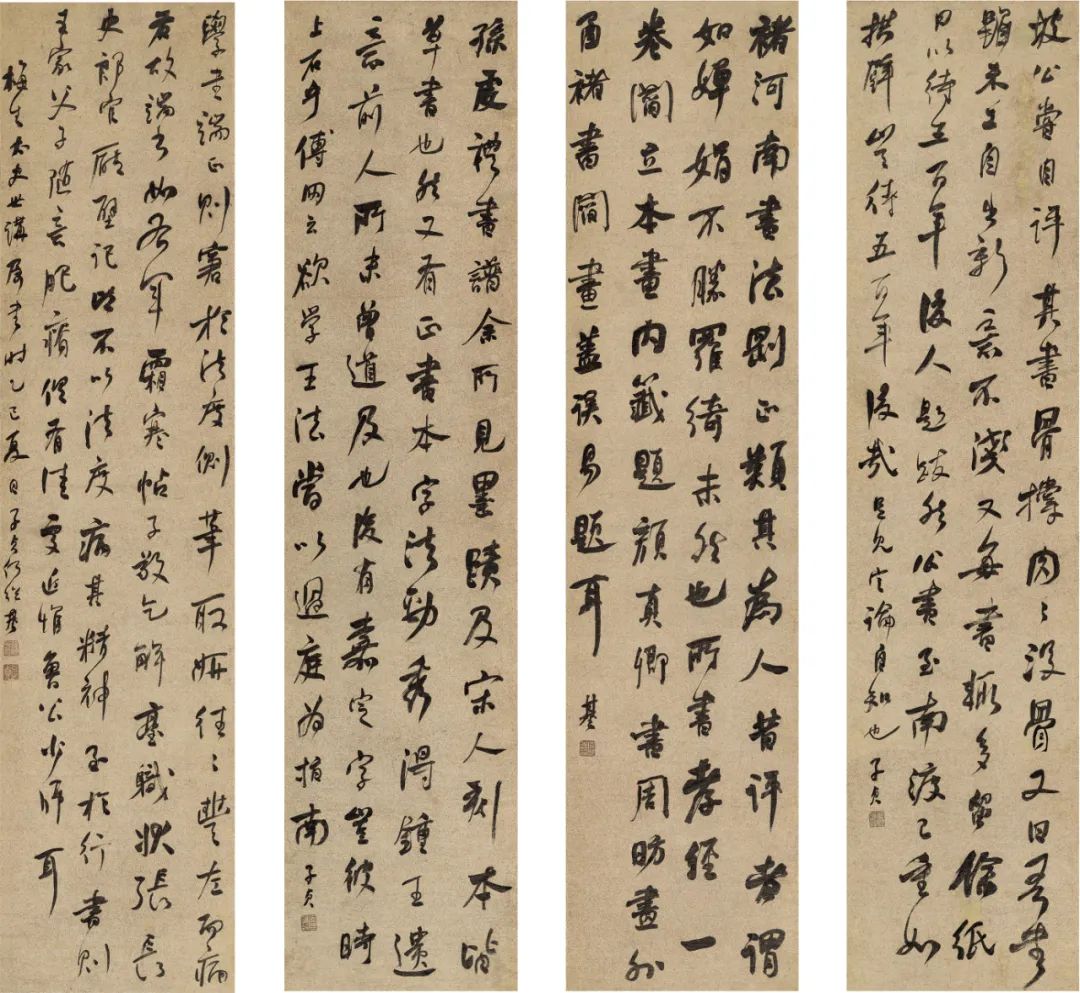 坡公尝自评其書骨撑肉肉没骨又曰吾書
雖未工自出新意不淺又每書輒多留餘紙
曰以待五百年後人題跋然公書至南渡已重如
拱璧豈待五百年後哉足見定論自知也 子貞
褚河南書法劉正類其為人昔评者謂
如婵娟不勝羅绮未然也所書孝經一
卷閻立本畫内籤題顔真卿書周昉畫外
面褚書閻畫蓋误易題耳
基
孫虔禮書譜余所見墨蹟及宋人刻本皆
草書也然又有正書本字法勁秀得鍾王遗
意前人所未曾道及也後有嘉定字豈彼時
上石耶傅网云欲学王法當以過庭为指南 子貞
學書端正則窘於法度侧筆取妍往往豐左而病
右故端书如右军霜寒帖子敬乞解臺職狀張長
史郎官廳壁記皆不以法度病其精神至於行書則
王家父子随意肥瘠俱有佳處近惟魯公少师耳
梅生
世講属书时乙巳夏日子貞何绍基